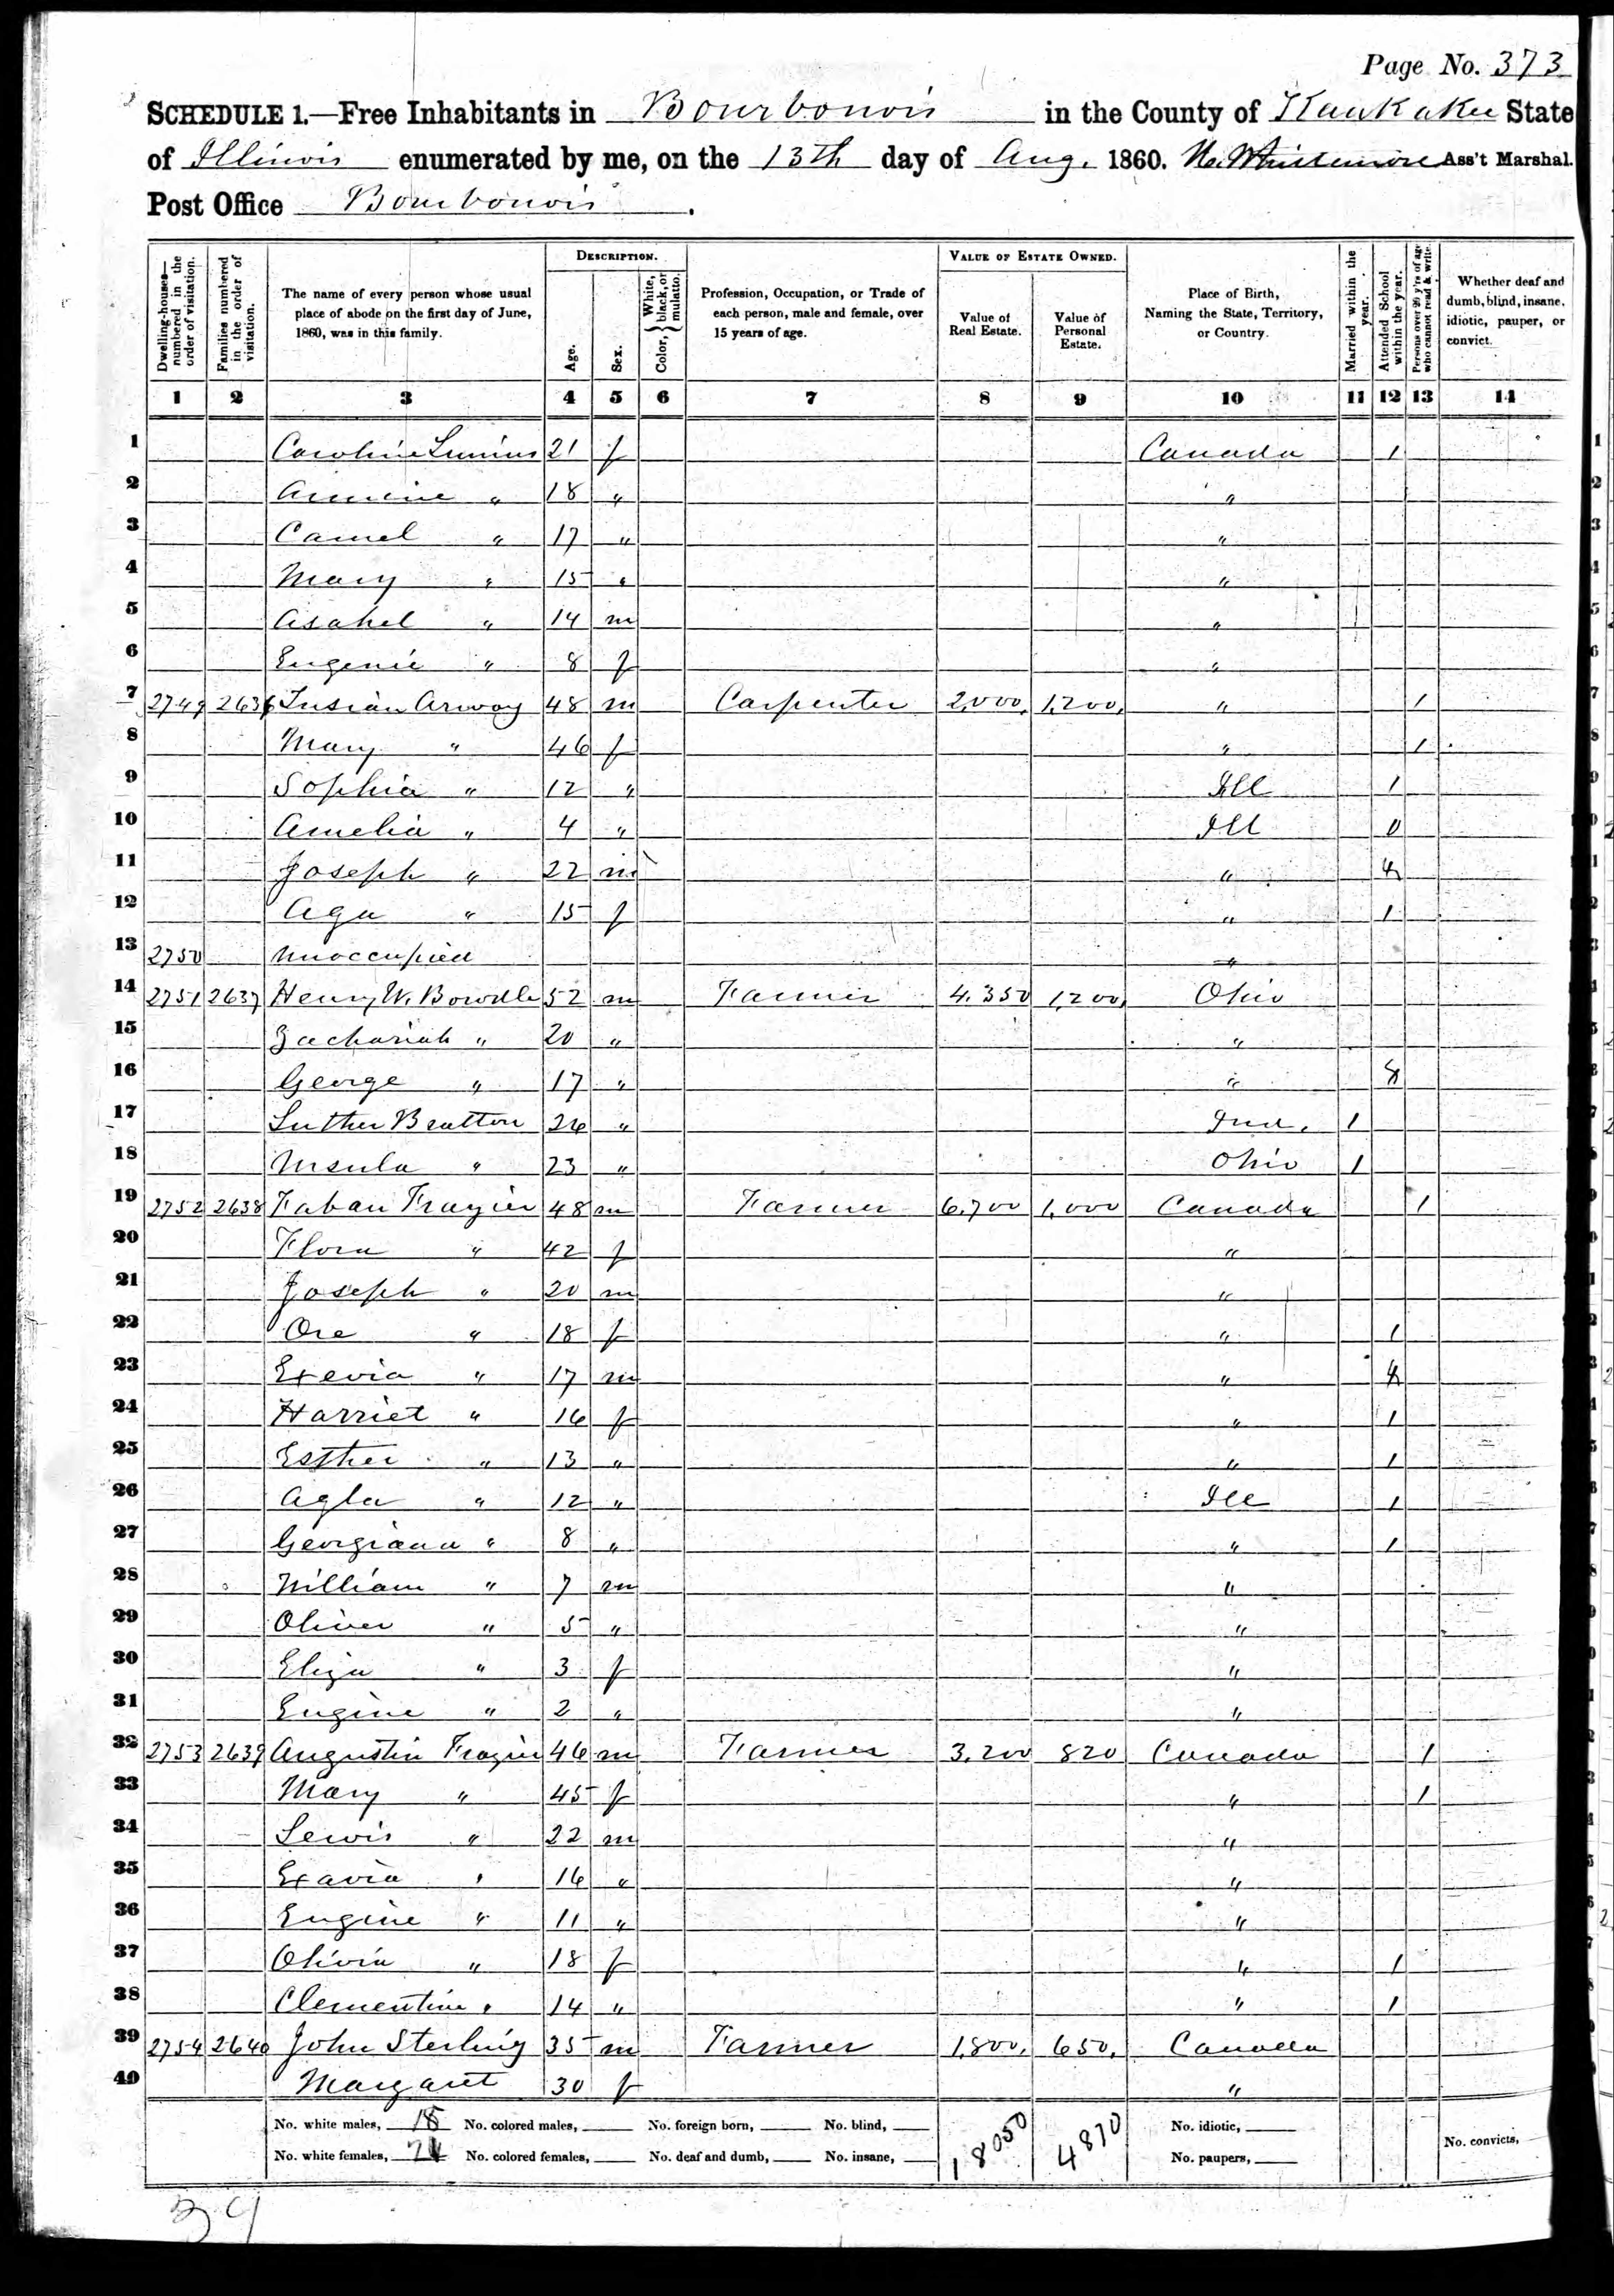 Page No. 373
SCHEDULE 1.—Free Inhabitants in Bourbonois in the County of Kankakee State
of Illinois enumerated by me, on the 13th day of Aug. 1860. Ass't Marshal.
Post Office Bourbonois.
Dwelling-houses—numbered in the order of visitation.
Families numbered in the order of visitation.
The name of every person whose usual place of abode on the first day of June, 1860, was in this family.
DESCRIPTION.
Age.
Sex.
Color, White, black, or mulatto.
Profession, Occupation, or Trade of each person, male and female, over 15 years of age.
VALUE OF ESTATE OWNED.
Value of Real Estate.
Value of Personal Estate.
Place of Birth, Naming the State, Territory, or Country.
Married within the year.
Attended School within the year.
Persons over 20 y'rs of age who cannot read & write.
Whether deaf and dumb, blind, insane, idiotic, pauper, or convict.
1 2 3 4 5 6 7 8 9 10 11 12 13 14
1 Caroline 21 f Canada 1
2 " 18 " "
3 Camel " 17 " "
4 Mary " 15 " "
5 Asahel " 14 m "
6 Eugenie " 8 f "
7 2749 2636 Arway 48 m Carpenter 2,000, 1,200, " 1
8 Mary " 46 f " 1
9 Sophia " 12 " Ill 1
10 Amelia " 4 " Ill
11 Joseph " 22 m "
12 Aga " 15 f " 1
13 2750 unoccupied "
14 2751 2637 Henry W. Bowdle 52 m Farmer 4,350 1,200, Ohio
15 Zachariah " 20 " "
16 George " 17 " "
17 Luther Bratton 26 " Ind. 1
18 Ursula " 23 " Ohio 1
19 2752 2638 Faban Frazier 48 m Farmer 6,700 1,000 Canada 1
20 Flora " 42 f "
21 Joseph " 20 m "
22 Ore " 18 f " 1
23 Exevia " 17 m "
24 Harriet " 16 f " 1
25 Esther " 13 " " 1
26 Agla " 12 " Ill 1
27 Georgiana " 8 " " 1
28 William " 7 m "
29 Oliver " 5 " "
30 Eliza " 3 f "
31 Eugine " 2 " "
32 2753 2639 Augustin Frazier 46 m Farmer 3,200 820 Canada 1
33 Mary " 45 f " 1
34 Lewis " 22 m "
35 Exavia " 16 " "
36 Eugine " 11 " "
37 Olivia " 18 f " 1
38 Clementine " 14 " " 1
39 2754 2640 John Sterling 35 m Farmer 1,800, 650, Canada
40 Margaret 30 f "
No. white males, No. colored males, No. foreign born, No. blind, 18050 4870 No. idiotic,
No. white females, No. colored females, No. deaf and dumb, No. insane, No. paupers, No. convicts,
39